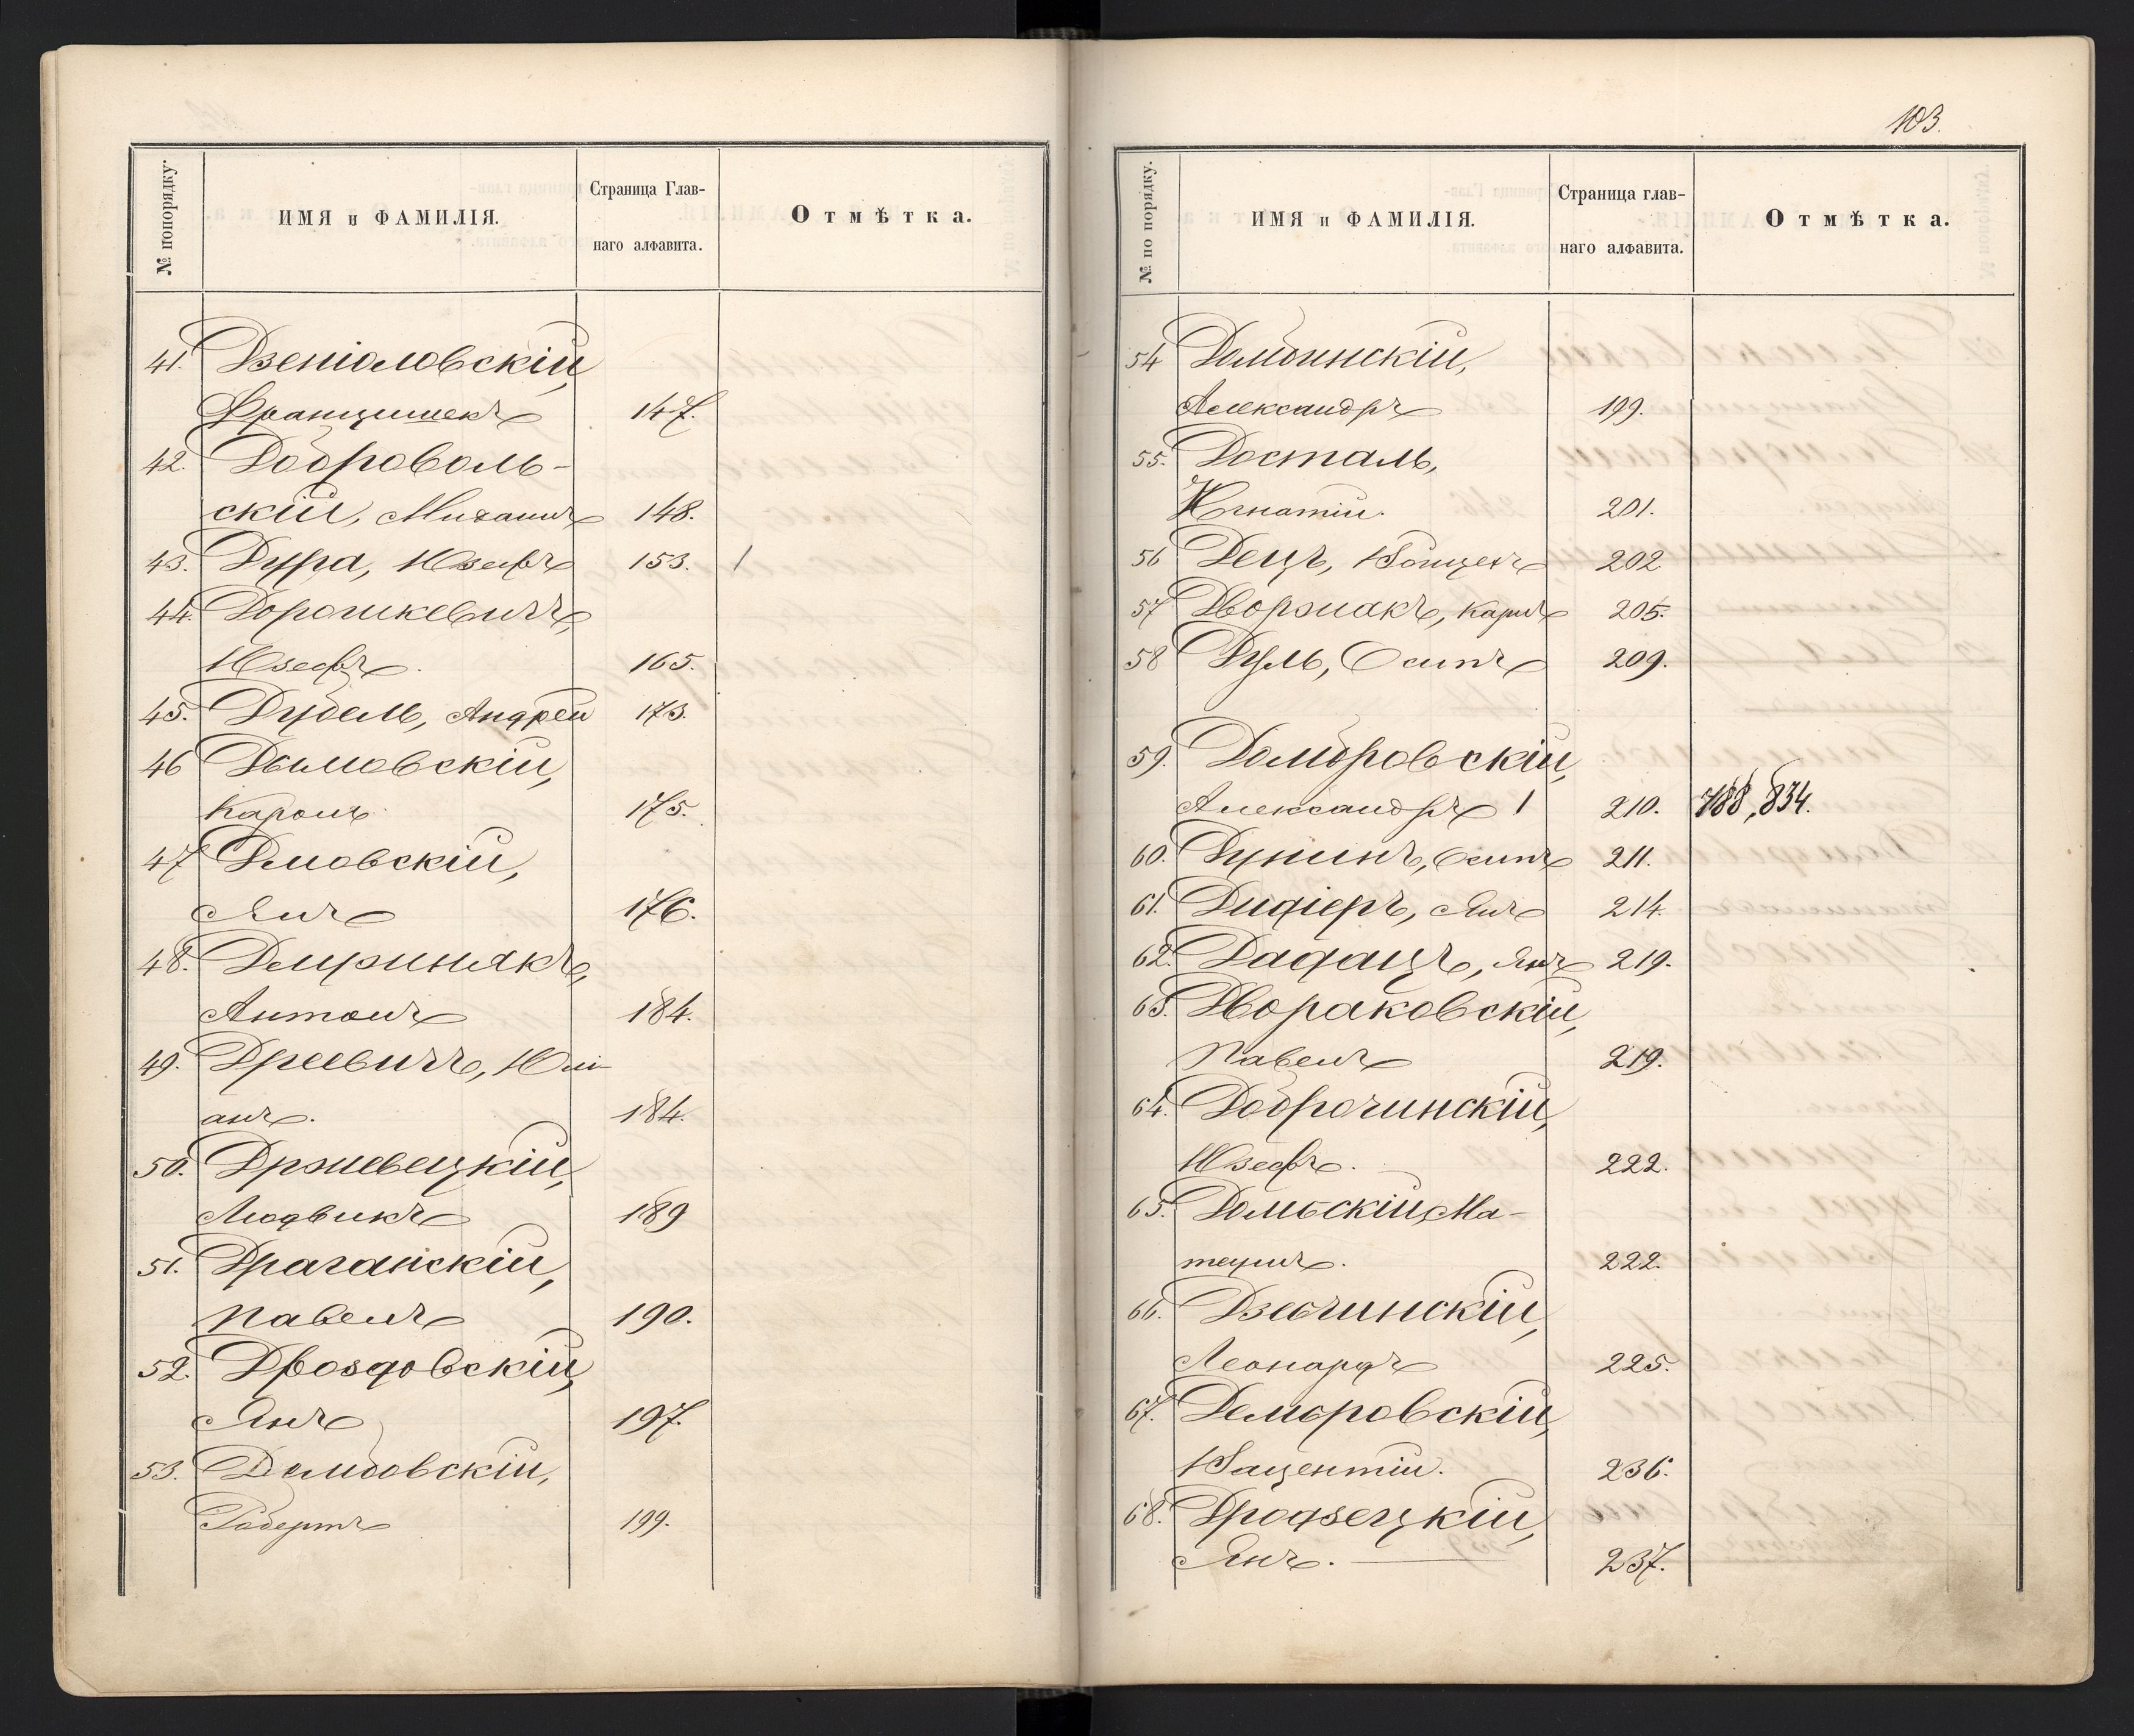 № попорядку.
ИМЯ и ФАМИЛІЯ.
Страница Глав-
наго алфавита.
Отмѣтка.
41. Дзеніоловскій,
Францишекъ 147.
42. Доброволь-
скій, Михаилъ 148.
43. Дура, Юзефъ 153. 1
44. Дорошкевичъ,
Юзефъ. 165.
45. Дубель, Андрей 173.
46 Дымовскій,
Кароль 175.
47 Дмовскій,
Янъ 176.
48.
Антонъ 184.
49. Древичъ, Юлі-
анъ. 184.
50. Држевецкій,
Людвикъ 189
51. Драганскій,
Павелъ 190.
52. Дроздовскій,
Янъ 197.
53. Домбовскій,
Робертъ 199.
103.
№ по порядку.
ИМЯ и ФАМИЛІЯ.
Страница глав-
наго алфавита.
Отмѣтка.
54 Домбинскій,
Александръ 199.
55. Досталь,
Игнатій. 201.
56 Децъ, Войцехъ 202
57 Дворжакъ, Карлъ 205.
58 Дуль, Осипъ 209.
59. Домбровскій,
Александръ 1 210. 788, 834.
60. Дунинъ, Осипъ 211.
61. Дидіеръ, Янъ 214.
62. Дадацъ, Янъ 219.
63. Двораковскій,
Павелъ 219.
64. Доброчинскій,
Юзефъ. 222.
65. Домбскій, Ма-
теушъ. 222.
66. Дзевчинскій,
Леонардъ 225.
67. Дембровскій,
Вацентій. 236.
68. Дродзецкій,
Янъ. 237.